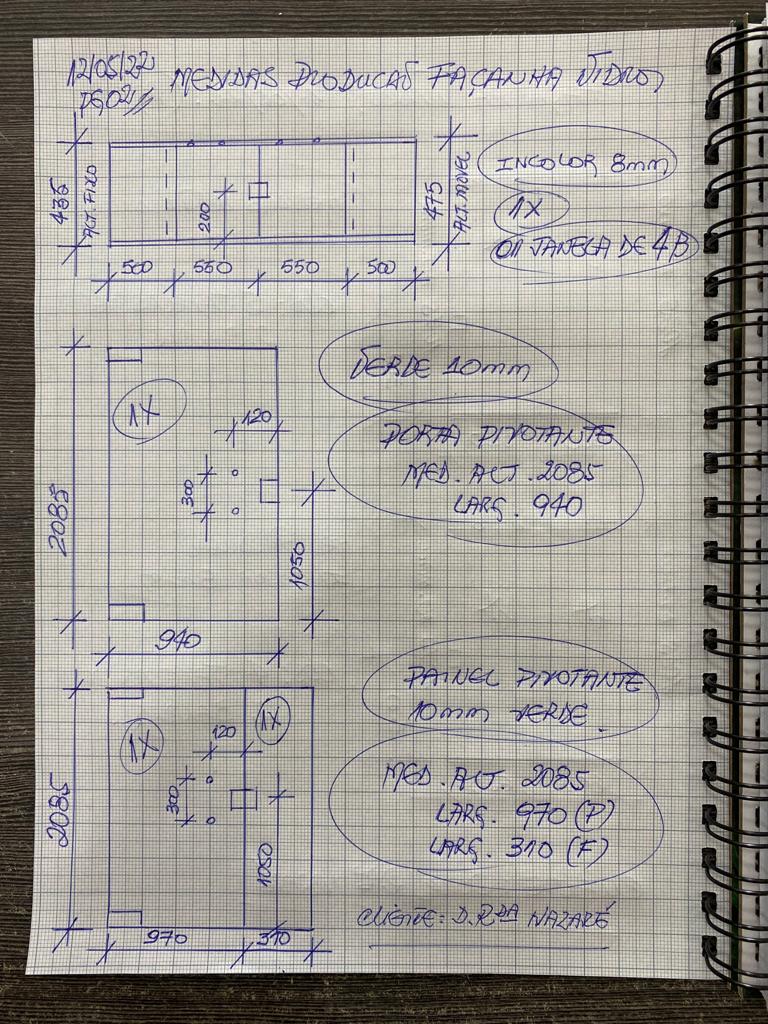 12/05/22 MEDIDAS PRODUCAÕ FAÇANHA VIDROS
PG02//
435
ALT. FIXO
200
475
ALT. MOVEL
INCOLOR 8mm
1X
01 JANELA DE 4B
500 550 550 500
2085
1X
120
300
1050
940
VERDE 10mm
PORTA PIVOTANTE
MED. ALT. 2085
LARG. 940
2085
1X
1X
120
300
1050
970 310
PAINEL PIVOTANTE
10mm VERDE.
MED. ALT. 2085
LARG. 970 (P)
LARG. 310 (F)
CLIENTE: D. Rda NAZARÉ